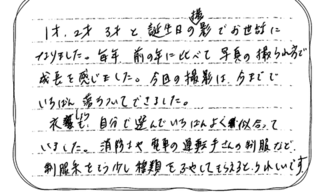 1才、2才 3才 と 誕生日の撮影でお世話に
なりました。毎年 前の年に比べて 写真の撮られ方で
成長を感じました。今回の撮影は、今までで
いちばん 落ちついてできました。
衣装も、自分で選んでいちばんよく似合って
いました。消防士や 電車の運転手さんの制服など、
制服系をもう少し種類をふやしてもらえると、うれしいです。